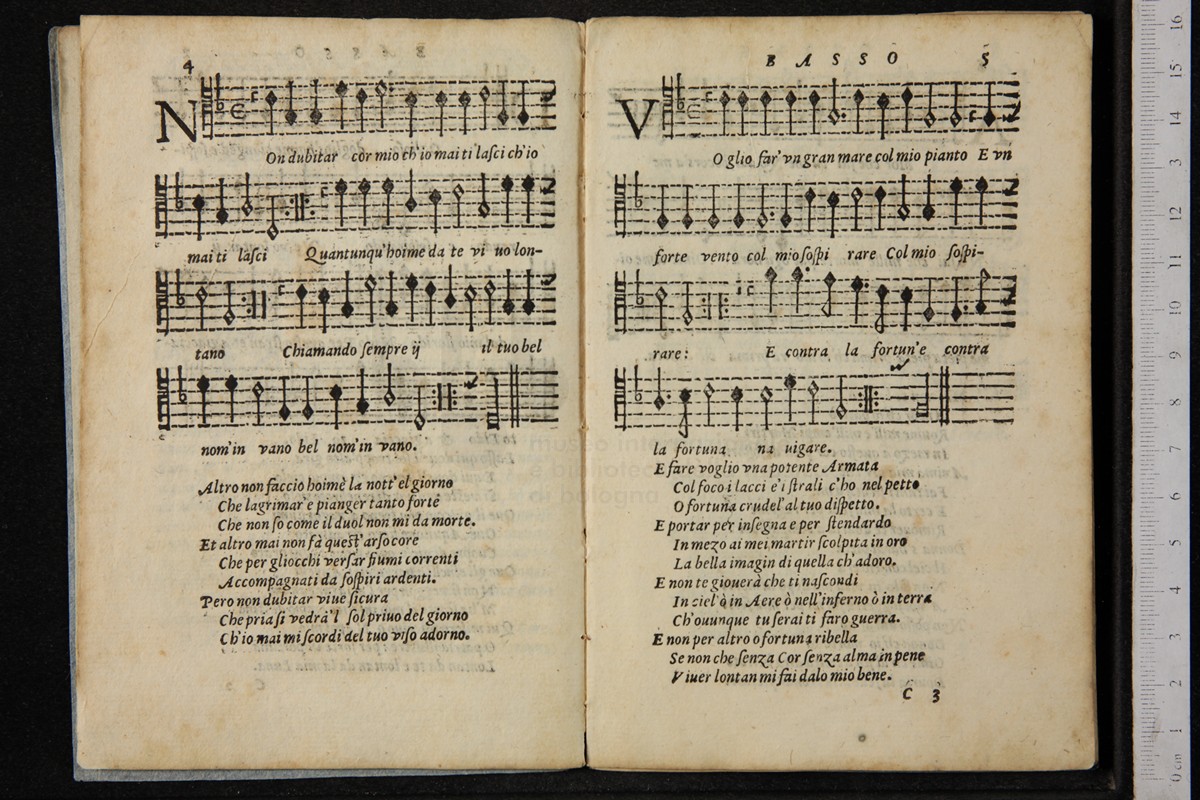 4
NOn dubitar cor mio ch'io mai ti laſci ch'io
mai ti laſci Quantunqu'hoime da te vi uo lon-
tano Chiamando ſempre ij il tuo bel
nom'in vano bel nom'in vano.
Altro non faccio hoimè la nott'el giorno
Che lagrimar'e pianger tanto forte
Che non ſo come il duol non mi da morte.
Et altro mai non fà queſt'arſo core
Che per gliocchi verſar fiumi correnti
Accompagnati da ſoſpiri ardenti.
Pero non dubitar viue ſicura
Che pria ſi vedrà'l ſol priuo del giorno
Ch'io mai mi ſcordi del tuo viſo adorno.
BASSO 5
VOglio far'vn gran mare col mio pianto E vn
forte vento col mio ſoſpi rare Col mio ſoſpi-
rare: E contra la fortun'e contra
la fortuna na uigare.
E fare voglio vna potente Armata
Col foco i lacci e'i ſtrali c'ho nel petto
O fortuna crudel'al tuo diſpetto.
E portar per inſegna e per ſtendardo
In mezo ai mei martir ſcolpita in oro
La bella imagin di quella ch'adoro.
E non te giouerà che ti naſcondi
In ciel'ò in Aere ò nell'inferno ò in terra
Ch'ouunque tu ſerai ti faro guerra.
E non per altro o fortuna ribella
Se non che ſenza Cor ſenza alma in pene
Viuer lontan mi fai dalo mio bene.
C 3
museo inte
e bibliotec
di bologna
0 cm 1 2 3 4 5 6 7 8 9 10 11 12 13 14 15 16